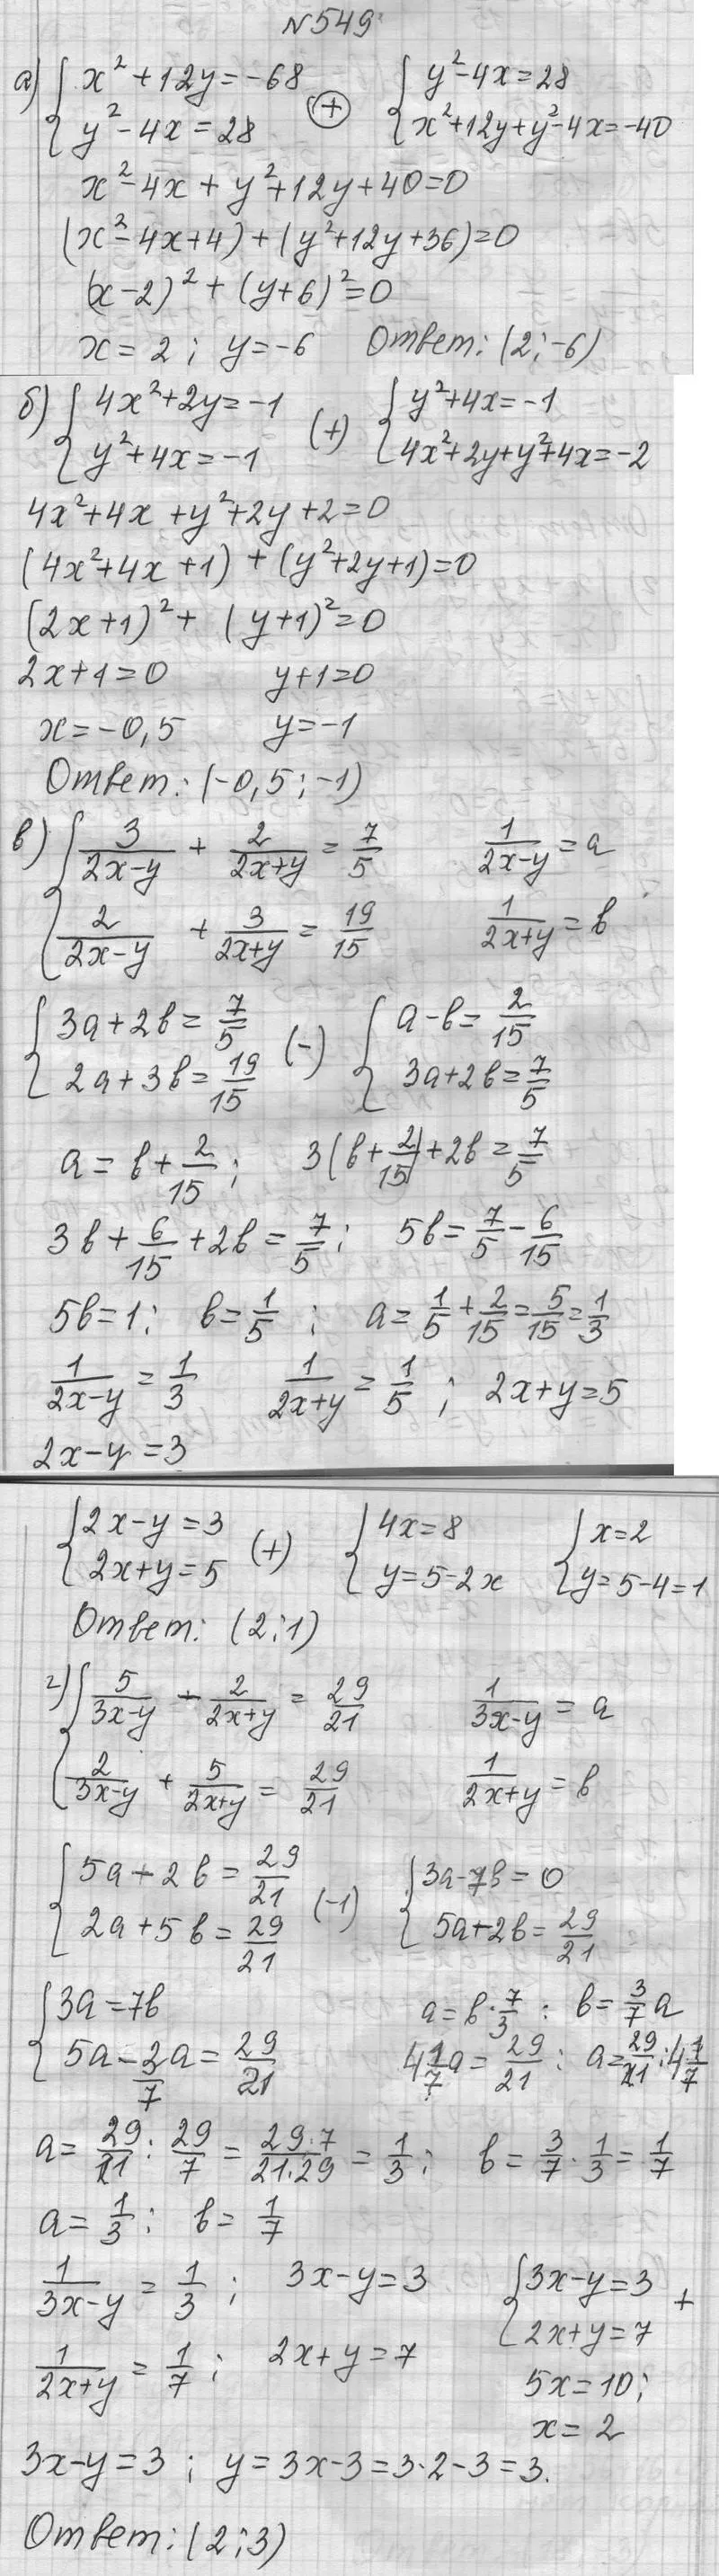 N549
а) { x² + 12y = -68 (+) { y² - 4x = 28
{ y² - 4x = 28 { x² + 12y + y² - 4x = -40
x² - 4x + y² + 12y + 40 = 0
(x² - 4x + 4) + (y² + 12y + 36) = 0
(x - 2)² + (y + 6)² = 0
x = 2; y = -6 Ответ: (2; -6)
б) { 4x² + 2y = -1 (+) { y² + 4x = -1
{ y² + 4x = -1 { 4x² + 2y + y² + 4x = -2
4x² + 4x + y² + 2y + 2 = 0
(4x² + 4x + 1) + (y² + 2y + 1) = 0
(2x + 1)² + (y + 1)² = 0
2x + 1 = 0 y + 1 = 0
x = -0,5 y = -1
Ответ: (-0,5; -1)
в) { 3/(2x-y) + 2/(2x+y) = 7/5 1/(2x-y) = a
{ 2/(2x-y) + 3/(2x+y) = 19/15 1/(2x+y) = в
{ 3a + 2в = 7/5 (-) { a - в = 2/15
{ 2a + 3в = 19/15 { 3a + 2в = 7/5
a = в + 2/15; 3(в + 2/15) + 2в = 7/5
3в + 6/15 + 2в = 7/5; 5в = 7/5 - 6/15
5в = 1; в = 1/5; a = 1/5 + 2/15 = 5/15 = 1/3
1/(2x-y) = 1/3 1/(2x+y) = 1/5; 2x + y = 5
2x - y = 3
{ 2x - y = 3 (+) { 4x = 8 { x = 2
{ 2x + y = 5 { y = 5 - 2x { y = 5 - 4 = 1
Ответ: (2; 1)
г) { 5/(3x-y) - 2/(2x+y) = 29/21 1/(3x-y) = a
{ 2/(3x-y) + 5/(2x+y) = 29/21 1/(2x+y) = в
{ 5a + 2в = 29/21 (-1) { 3a - 7в = 0
{ 2a + 5в = 29/21 { 5a + 2в = 29/21
{ 3a = 7в a = в · 7/3; в = 3/7 a
{ 5a - 3/7 2a = 29/21 4 1/7 a = 29/21; a = 29/21 : 4 1/7
a = 29/21 : 29/7 = 29·7/21·29 = 1/3; в = 3/7 · 1/3 = 1/7
a = 1/3; в = 1/7
1/(3x-y) = 1/3; 3x - y = 3 { 3x - y = 3 +
1/(2x+y) = 1/7; 2x + y = 7 { 2x + y = 7
5x = 10;
x = 2
3x - y = 3; y = 3x - 3 = 3·2 - 3 = 3.
Ответ: (2; 3)